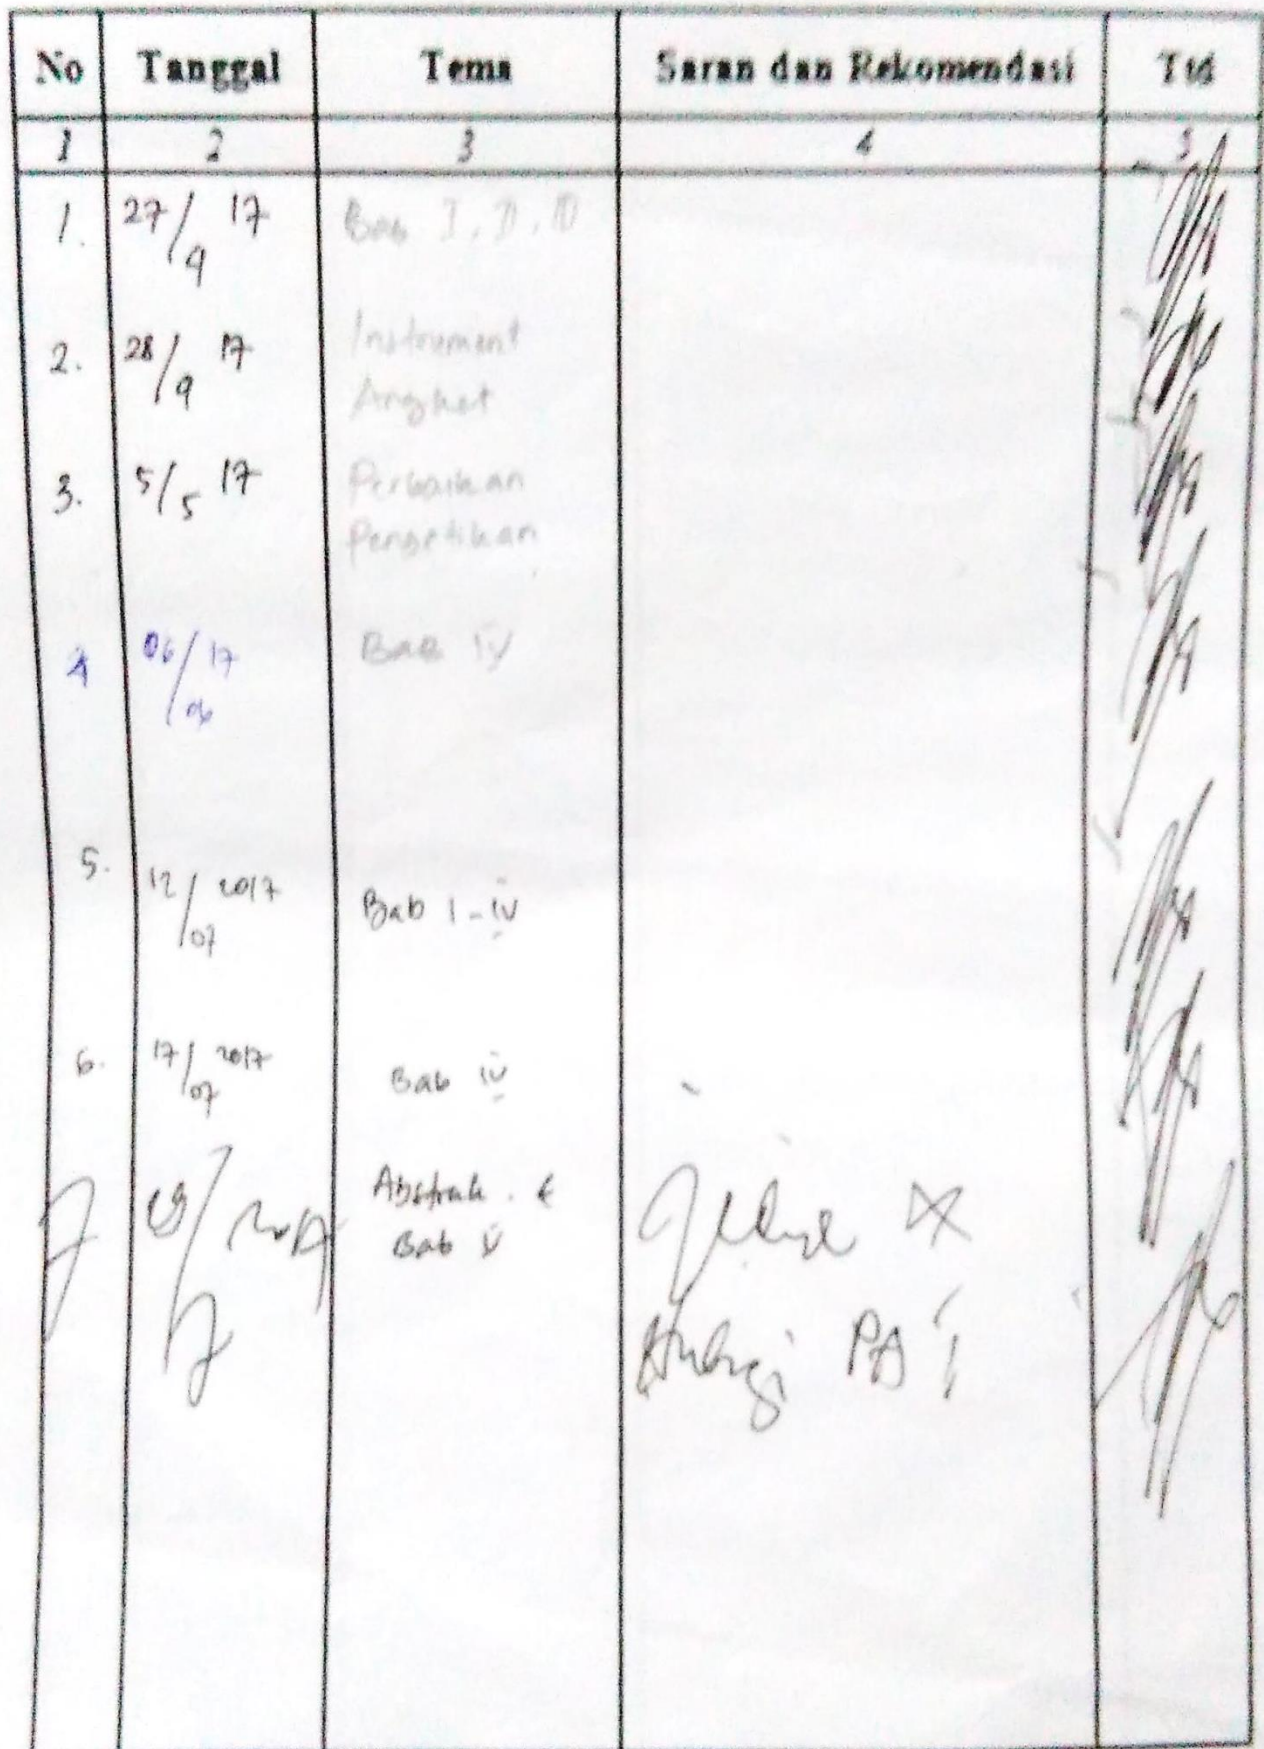 No Tanggal Tema Saran dan Rekomendasi Ttd
1 2 3 4 5
1. 27/9 17 Bab I, II, III
2. 28/9 17 Instrument
Angket
3. 5/5 17 Perbaikan
Pengetikan
4 06/06 17 Bab IV
5. 12/07 2017 Bab I - IV
6. 17/07 2017 Bab IV
7 19/7 2017 Abstrak . &
Bab V
Hubungi PA